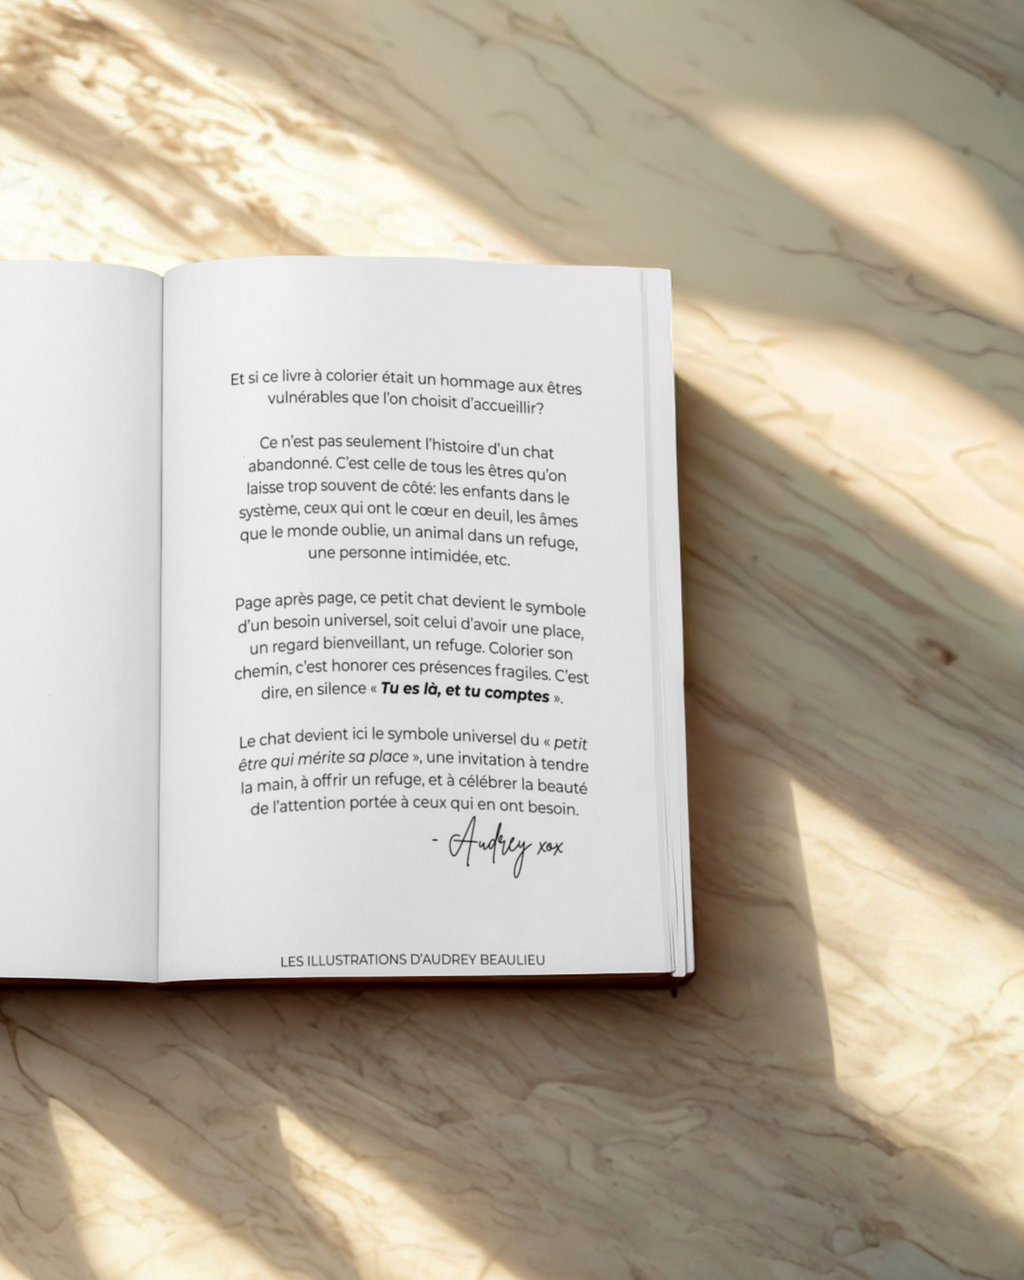 Et si ce livre à colorier était un hommage aux êtres
vulnérables que l'on choisit d'accueillir?
Ce n'est pas seulement l'histoire d'un chat
abandonné. C'est celle de tous les êtres qu'on
laisse trop souvent de côté: les enfants dans le
système, ceux qui ont le cœur en deuil, les âmes
que le monde oublie, un animal dans un refuge,
une personne intimidée, etc.
Page après page, ce petit chat devient le symbole
d'un besoin universel, soit celui d'avoir une place,
un regard bienveillant, un refuge. Colorier son
chemin, c'est honorer ces présences fragiles. C'est
dire, en silence « Tu es là, et tu comptes ».
Le chat devient ici le symbole universel du « petit
être qui mérite sa place », une invitation à tendre
la main, à offrir un refuge, et à célébrer la beauté
de l'attention portée à ceux qui en ont besoin.
- Audrey xox
LES ILLUSTRATIONS D'AUDREY BEAULIEU